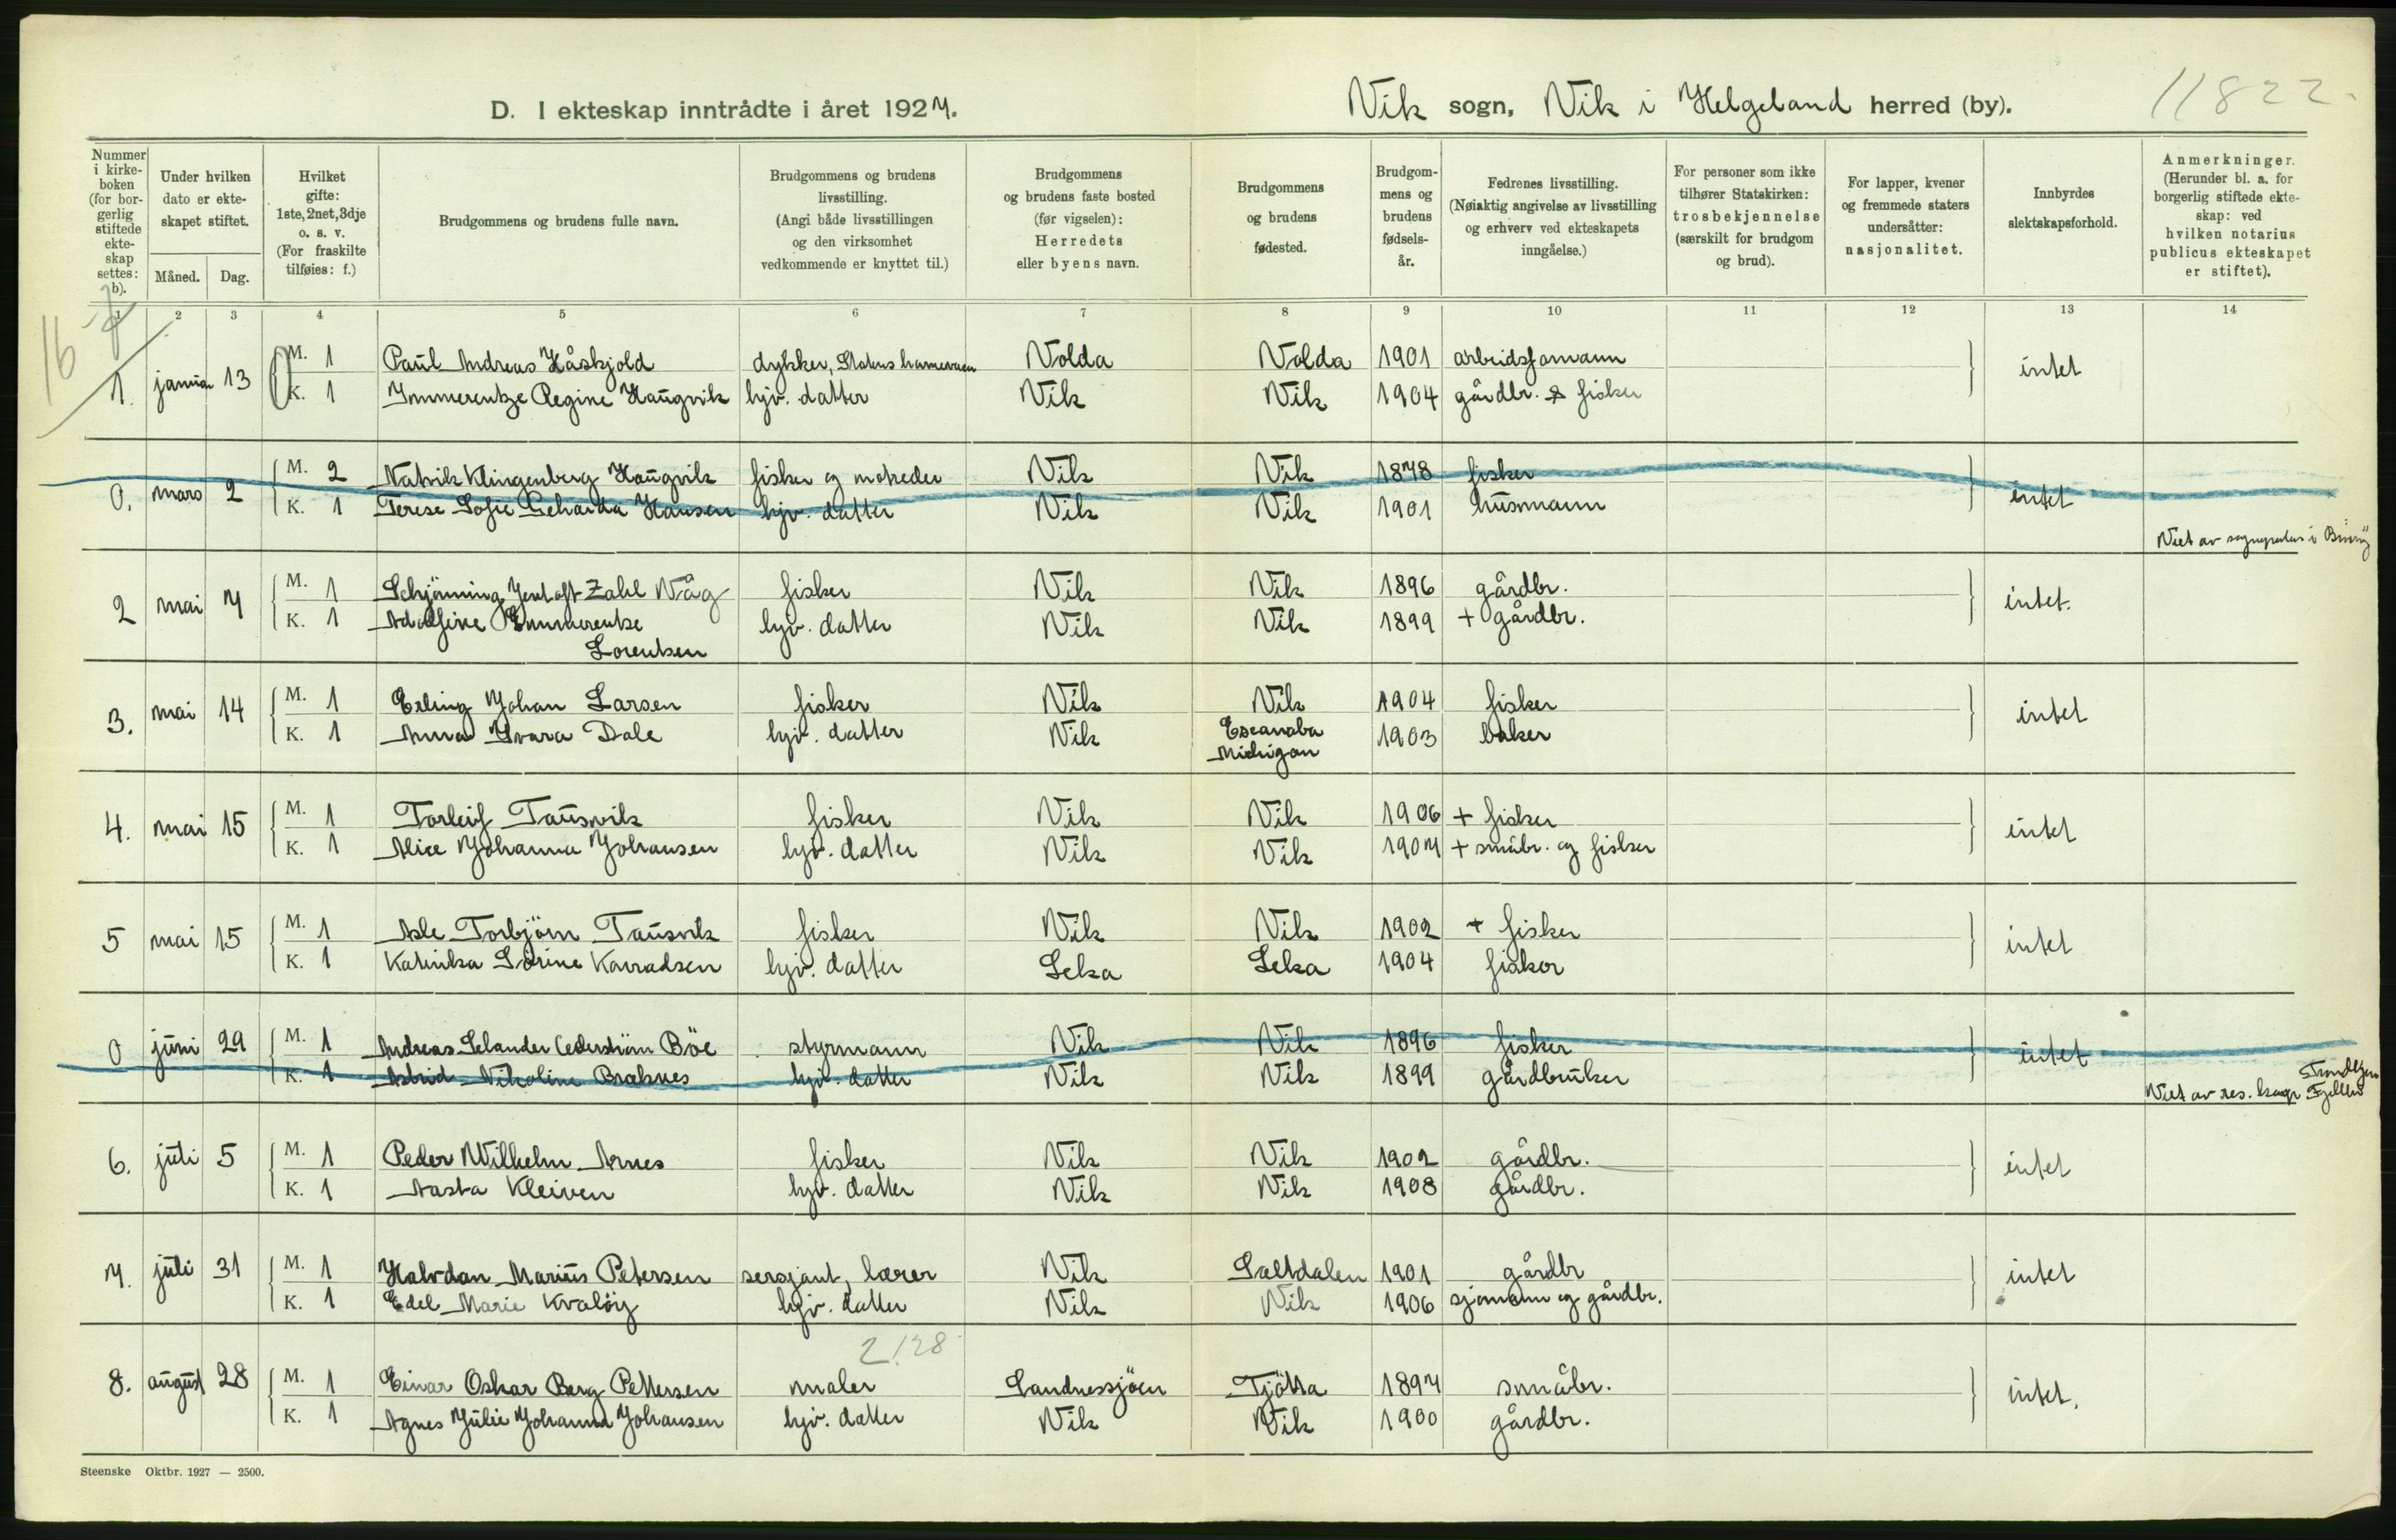 D. I ekteskap inntrådte i året 1927. Vik sogn, Vik i Helgeland herred (by). 11822.
Nummer i kirke-boken (for bor-gerlig stiftede ekte-skap settes: b).
Under hvilken dato er ekte-skapet stiftet.
Måned. Dag.
Hvilket gifte: 1ste, 2net, 3dje o. s. v. (For fraskilte tilføies: f.)
Brudgommens og brudens fulle navn.
Brudgommens og brudens livsstilling. (Angi både livsstillingen og den virksomhet vedkommende er knyttet til.)
Brudgommens og brudens faste bosted (før vigselen): Herredets eller byens navn.
Brudgommens og brudens fødested.
Brudgom-mens og brudens fødsels-år.
Fedrenes livsstilling. (Nøiaktig angivelse av livsstilling og erhverv ved ekteskapets inngåelse.)
For personer som ikke tilhører Statskirken: trosbekjennelse (særskilt for brudgom og brud).
For lapper, kvener og fremmede staters undersåtter: nasjonalitet.
Innbyrdes slektskapsforhold.
Anmerkninger. (Herunder bl. a. for borgerlig stiftede ekte-skap: ved hvilken notarius publicus ekteskapet er stiftet).
1 2 3 4 5 6 7 8 9 10 11 12 13 14
16
1. januar 13 M. 1 Paul Andreas Håskjold dykker, Statens havnevesen Volda Volda 1901 arbeidsformann intet
K. 1 Immerentze Regine Haugvik hjv. datter Vik Vik 1904 gårdbr. & fisker
0. mars 2 M. 2 Natvik Klingenberg Haugvik fisker og motreder Vik Vik 1878 fisker intet
K. 1 Terese Sofie Geharda Hansen hjv. datter Vik Vik 1901 husmann
Viet av sognepresten i
2 mai 7 M. 1 Schjönning Jentoft Zahl Våg fisker Vik Vik 1896 gårdbr. intet.
K. 1 Adolfine Emmerentze Lorentzen hjv. datter Vik Vik 1899 + gårdbr.
3. mai 14 M. 1 Erling Johan Larsen fisker Vik Vik 1904 fisker intet
K. 1 Anna Ivara Dale hjv. datter Vik Escanaba Michigan 1903 baker
4. mai 15 M. 1 Torleif Tausvik fisker Vik Vik 1906 + fisker intet
K. 1 Alice Johanna Johansen hjv. datter Vik Vik 1907 + småbr. og fisker
5 mai 15 M. 1 Asle Torbjörn Tausvik fisker Vik Vik 1902 + fisker intet
K. 1 Katinka Lorine Konradsen hjv. datter Leka Leka 1904 fisker
0 juni 29 M. 1 Andreas Selander Cederström Böe styrmann Vik Vik 1896 fisker intet
K. 1 Astrid Nikoline Braknes hjv. datter Vik Vik 1899 gårdbruker
Viet av res. kap.
6. juli 5 M. 1 Peder Wilhelm Arnes fisker Vik Vik 1902 gårdbr. intet
K. 1 Aasta Kleiven hjv. datter Vik Vik 1908 gårdbr.
7. juli 31 M. 1 Halvdan Marius Petersen sersjant, lærer Vik Saltdalen 1901 gårdbr intet
K. 1 Edel Marie Kvalöy hjv. datter Vik Vik 1906 sjømann og gårdbr.
2/28
8. august 28 M. 1 Einar Oskar Berg Pettersen maler Sandnessjöen Tjötta 1897 småbr. intet.
K. 1 Agnes Julie Johanna Johansen hjv. datter Vik Vik 1900 gårdbr.
Steenske Oktbr. 1927 — 2500.